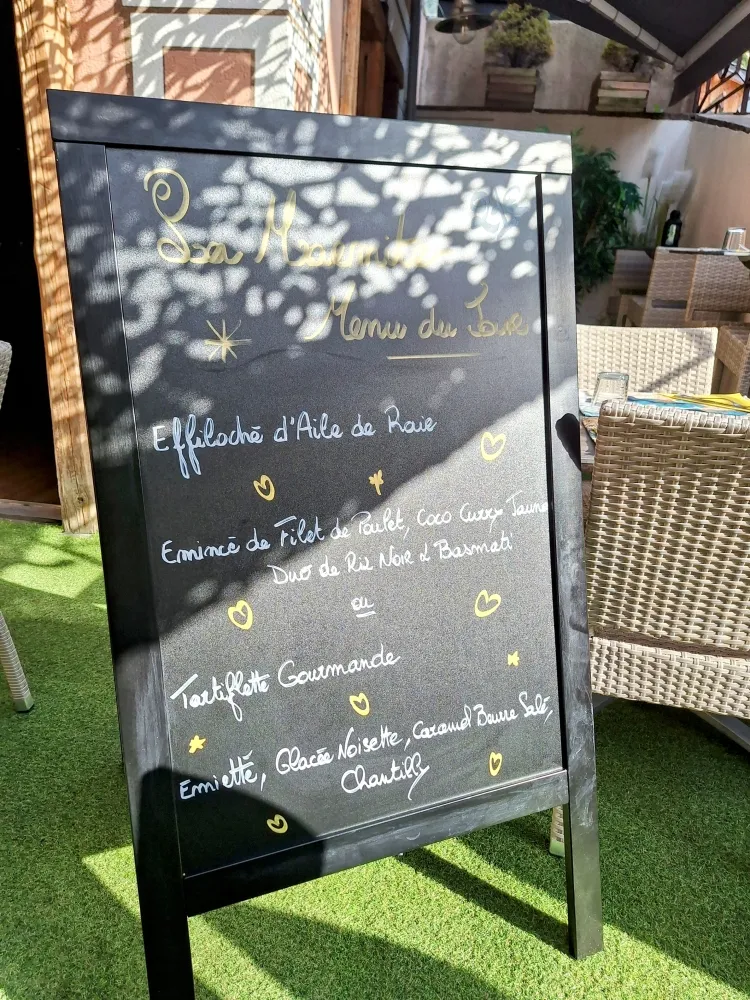 La Marmite
Menu du Jour
Effiloché d'Aile de Raie
Emincé de Filet de Poulet, Coco Curry Jaune
Duo de Riz Noir & Basmati
ou
Tartiflette Gourmande
Emietté, Glacée Noisette, Caramel Beurre Salé,
Chantilly